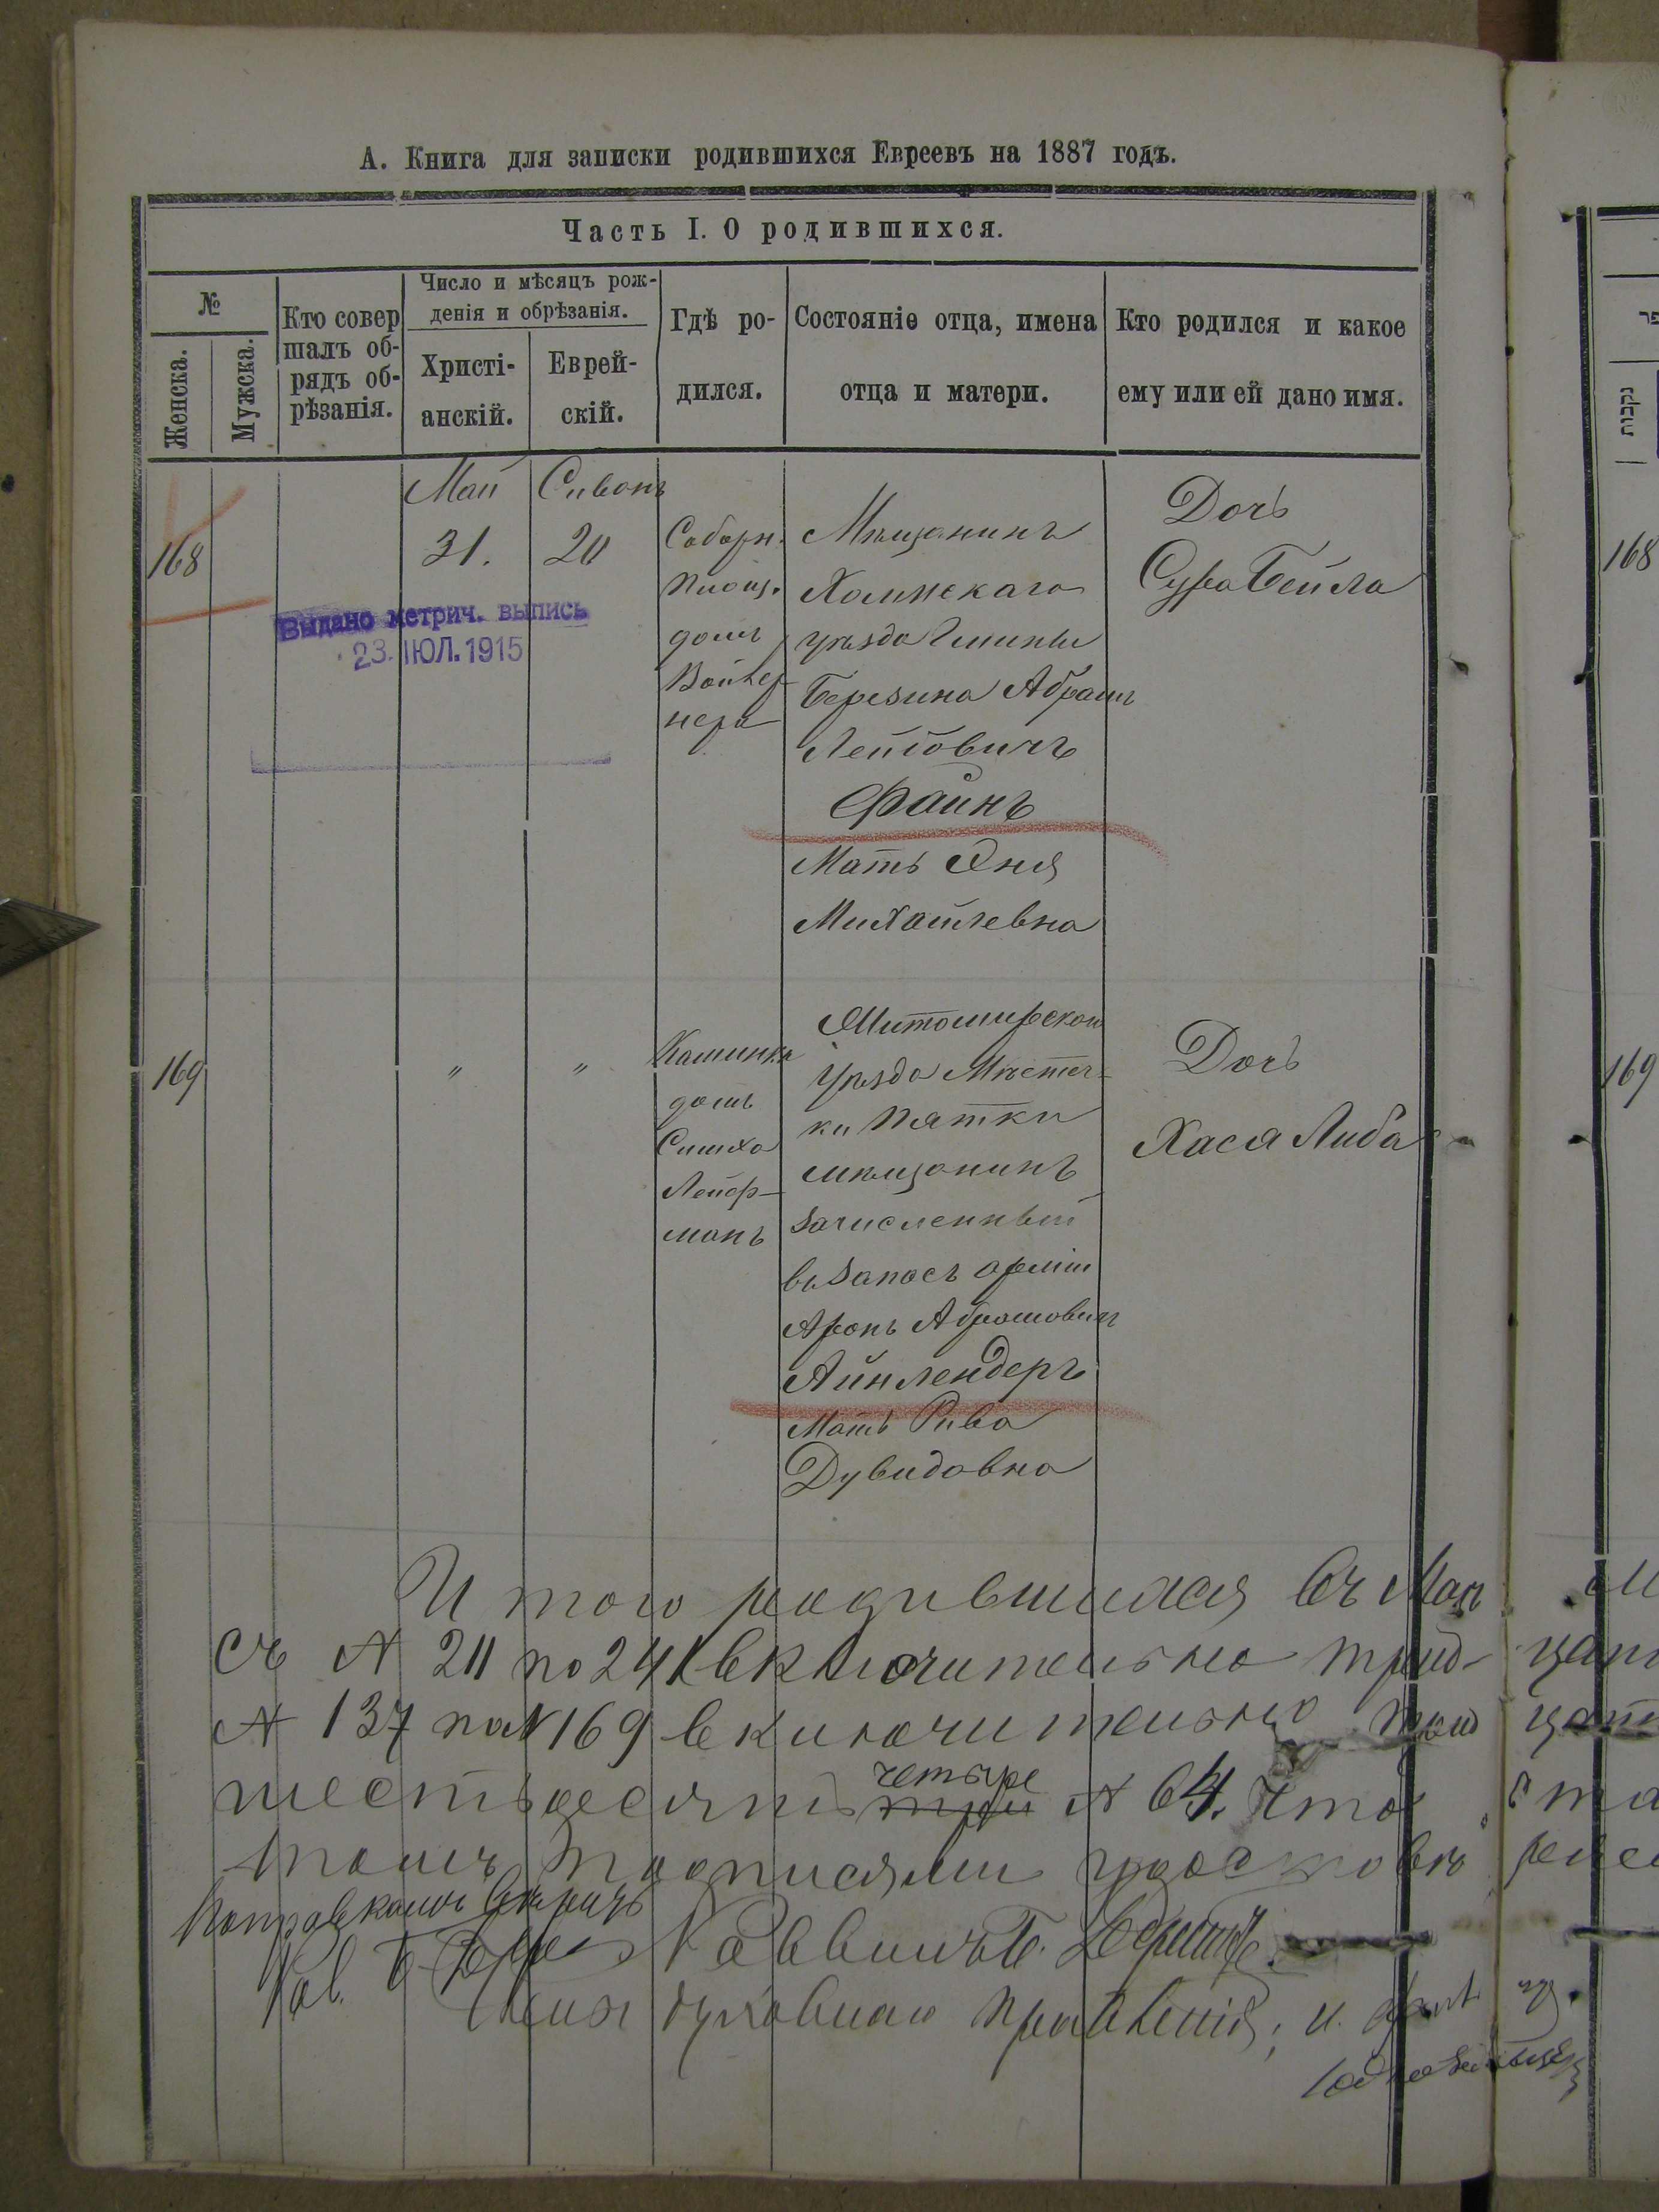 А. Книга для записки родившихся Евреевъ на 1887 годъ.
Часть I. О родившихся.
№
Женска.
Мужска.
Кто совер
шалъ об-
рядъ об-
рѣзанія.
Число и мѣсяцъ рож-
денія и обрѣзанія.
Христі-
анскій.
Еврей-
скій.
Гдѣ ро-
дился.
Состояніе отца, имена
отца и матери.
Кто родился и какое
ему или ей дано имя.
נקבות
168
Май
31.
Сивонъ
20
Выдано метрич. выпись
23. ІЮЛ. 1915
Соборн.
площ.
домъ
Мѣщанинъ
уѣзда
Березина Абрамъ
Лейбовичъ
Файнъ
Мать Эня
Михайлевна
Дочь
Сура Бейла
168
169
"
"
Кашинка
домъ
Симха
Лейф-
манъ
Житомирскаго
Уѣзда Мѣстеч-
ки Пятки
мѣщанинъ
зачисленный
въ запасъ арміи
Аронъ Абрамович
Айнлендеръ
Мать Рива
Дувидовна
Дочь
Хася Либа
169
Итого родившихся въ Маѣ
съ № 211 по 241 включительно трид-
№ 137 по № 169 включительно трид
шестьдесятъ четыре три № 64. Что
подписями удостовѣ
Раввинъ Б.
Рав. Б.
Членъ духовнаго правленія,